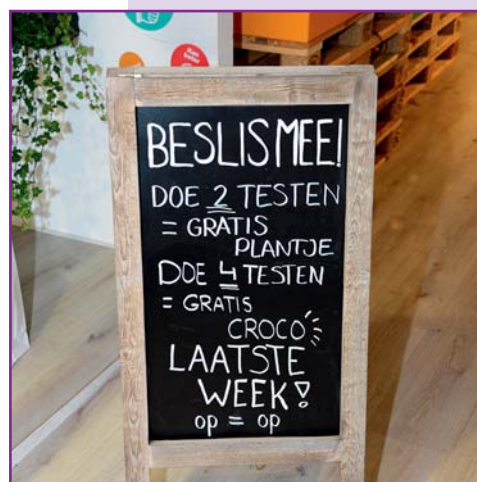 BESLIS MEE!
DOE 2 TESTEN
= GRATIS
PLANTJE
DOE 4 TESTEN
= GRATIS
CROCO
LAATSTE
WEEK!
op = op